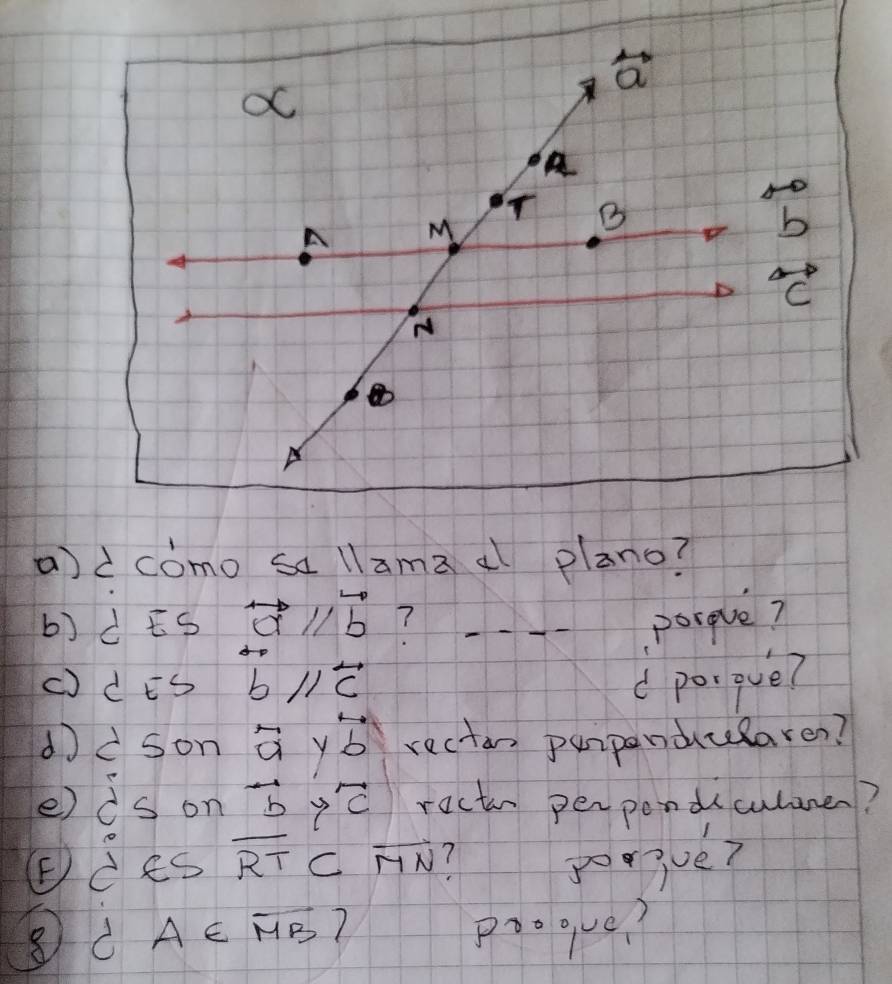 α
a
R
T
B
b
A
M
c
N
a) ¿ cómo se llama el plano?
b) ¿ ES a // b ? ---- porqué?
c) ¿ ES b // c ¿ porqué?
d) ¿ son a y b rectas perpendiculares?
e) ¿ son b y c rectas perpendiculares?
F) ¿ ES RT ⊂ MN? porqué?
g) ¿ A ∈ MB? porque?